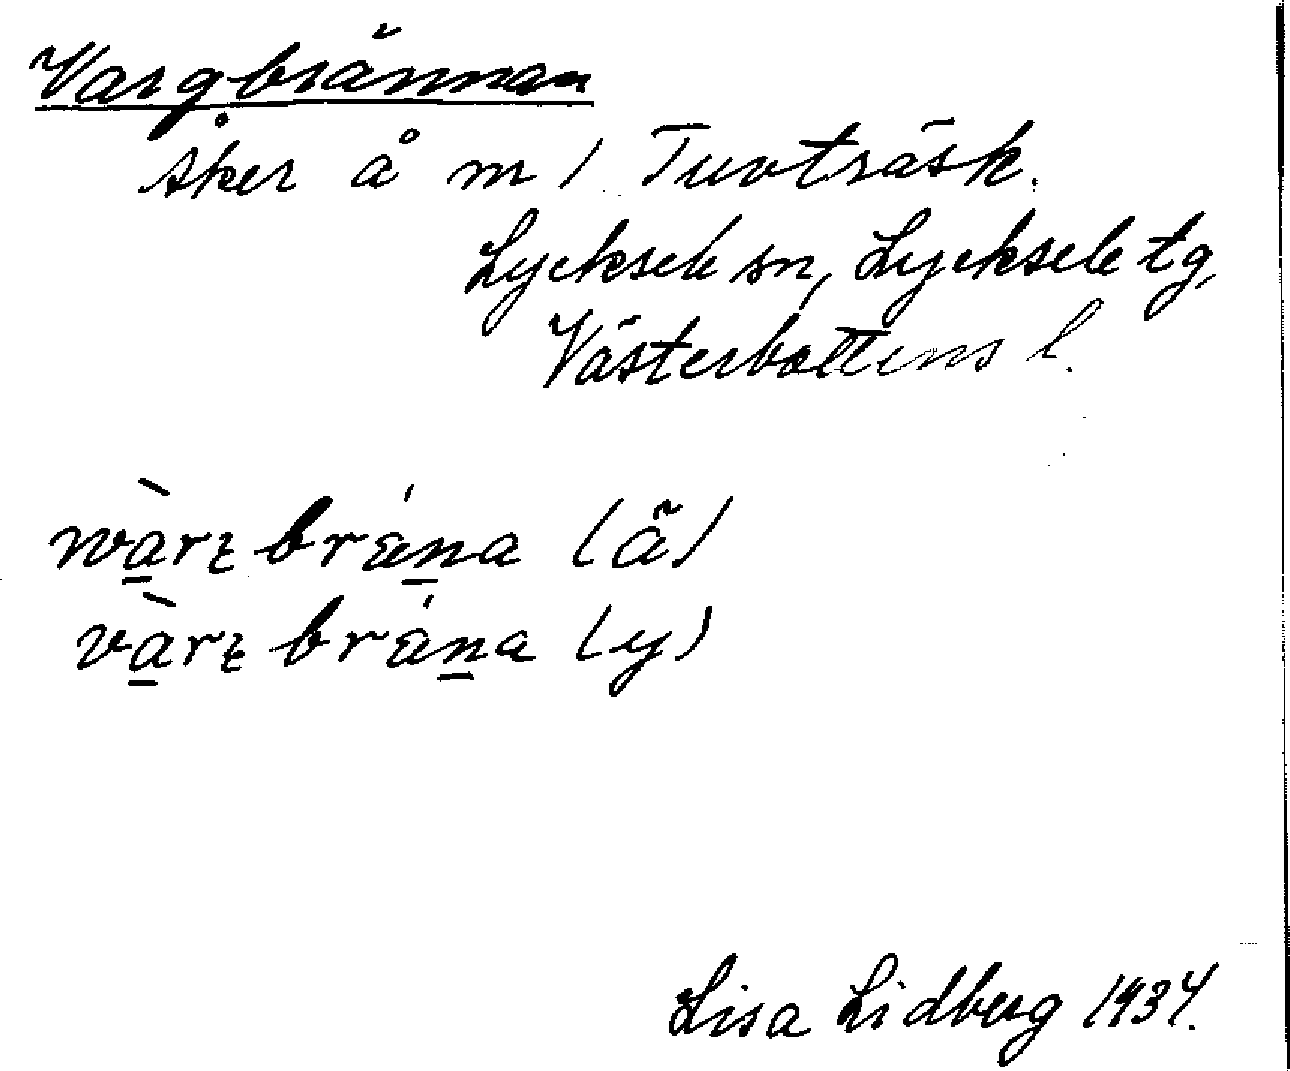 Vargbrännan
åker å m / Tuvträsk.
Lycksele sn, Lycksele tg,
Västerbottens l.
wàrʒbrána (ä)
vàrʒbrána (y)
Lisa Lidberg 1934.